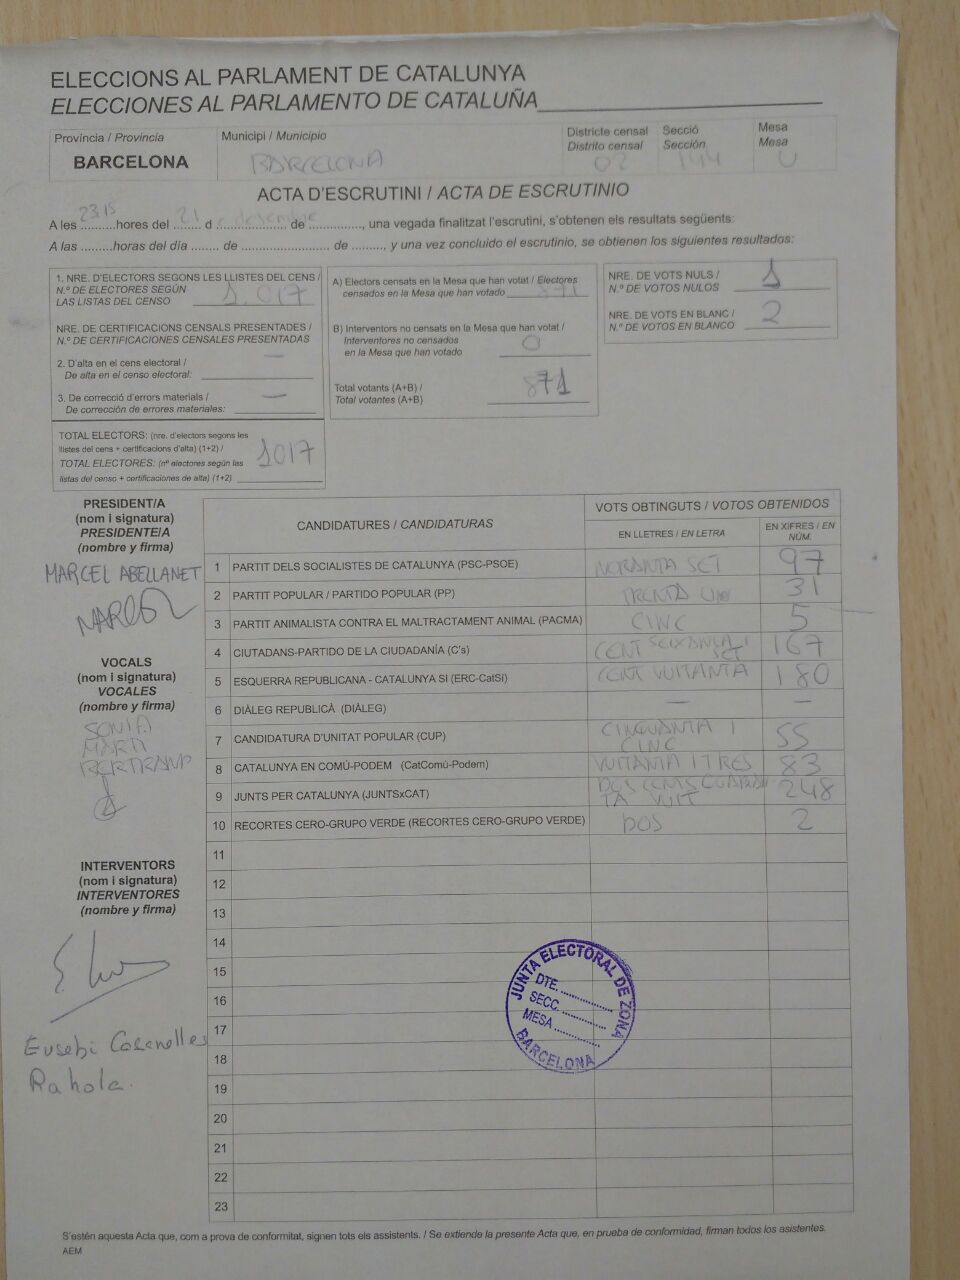 ELECCIONS AL PARLAMENT DE CATALUNYA
ELECCIONES AL PARLAMENTO DE CATALUÑA
Província / Provincia
BARCELONA
Municipi / Municipio
BARCELONA
Districte censal
Distrito censal
02
Secció
Sección
144
Mesa
Mesa
U
ACTA D'ESCRUTINI / ACTA DE ESCRUTINIO
A les 23.15 hores del 21 d e desembre de ..............., una vegada finalitzat l'escrutini, s'obtenen els resultats següents:
A las .........horas del día ........ de ........................ de ........., y una vez concluido el escrutinio, se obtienen los siguientes resultados:
1. NRE. D'ELECTORS SEGONS LES LLISTES DEL CENS /
N.º DE ELECTORES SEGÚN
LAS LISTAS DEL CENSO 1.017
NRE. DE CERTIFICACIONS CENSALS PRESENTADES /
N.º DE CERTIFICACIONES CENSALES PRESENTADAS
2. D'alta en el cens electoral / —
De alta en el censo electoral:
3. De correcció d'errors materials / —
De corrección de errores materiales:
TOTAL ELECTORS: (nre. d'electors segons les
llistes del cens + certificacions d'alta) (1+2) /
TOTAL ELECTORES: (nº electores según las
listas del censo + certificaciones de alta) (1+2)
1017
A) Electors censats en la Mesa que han votat / Electores
censados en la Mesa que han votado 871
B) Interventors no censats en la Mesa que han votat /
Interventores no censados
en la Mesa que han votado 0
Total votants (A+B) /
Total votantes (A+B) 871
NRE. DE VOTS NULS /
N.º DE VOTOS NULOS 1
NRE. DE VOTS EN BLANC /
N.º DE VOTOS EN BLANCO 2
PRESIDENT/A
(nom i signatura)
PRESIDENTE/A
(nombre y firma)
MARCEL ABELLANET
VOCALS
(nom i signatura)
VOCALES
(nombre y firma)
SONIA
MARTI
BERTRAND
INTERVENTORS
(nom i signatura)
INTERVENTORES
(nombre y firma)
Eusebi Casanelles
Rahola.
CANDIDATURES / CANDIDATURAS
VOTS OBTINGUTS / VOTOS OBTENIDOS
EN LLETRES / EN LETRA
EN XIFRES / EN NÚM.
1 PARTIT DELS SOCIALISTES DE CATALUNYA (PSC-PSOE) NORANTA SET 97
2 PARTIT POPULAR / PARTIDO POPULAR (PP) TRENTA UN 31
3 PARTIT ANIMALISTA CONTRA EL MALTRACTAMENT ANIMAL (PACMA) CINC 5
4 CIUTADANS-PARTIDO DE LA CIUDADANÍA (C's) CENT SEIXANTA I SET 167
5 ESQUERRA REPUBLICANA - CATALUNYA SI (ERC-CatSí) CENT VUITANTA 180
6 DIÀLEG REPUBLICÀ (DIÀLEG) — —
7 CANDIDATURA D'UNITAT POPULAR (CUP) CINQUANTA I CINC 55
8 CATALUNYA EN COMÚ-PODEM (CatComú-Podem) VUITANTA I TRES 83
9 JUNTS PER CATALUNYA (JUNTSxCAT) DOS CENTS CUARANTA VUIT 248
10 RECORTES CERO-GRUPO VERDE (RECORTES CERO-GRUPO VERDE) DOS 2
11
12
13
14
15
16
17
18
19
20
21
22
23
JUNTA ELECTORAL DE ZONA
DTE. ..............
SECC. ..............
MESA ..............
BARCELONA
S'estén aquesta Acta que, com a prova de conformitat, signen tots els assistents. / Se extiende la presente Acta que, en prueba de conformidad, firman todos los asistentes.
AEM